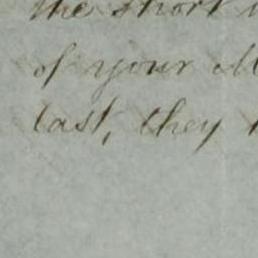 the short
of your
last, they